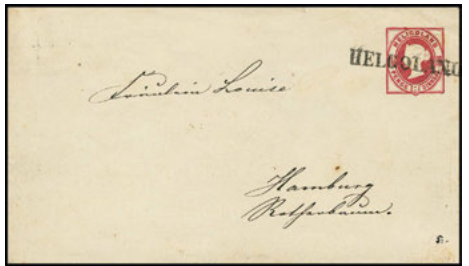 HELIGOLAND
HELGOLAND
Fräulein Louise
Hamburg
Rothenbaum.